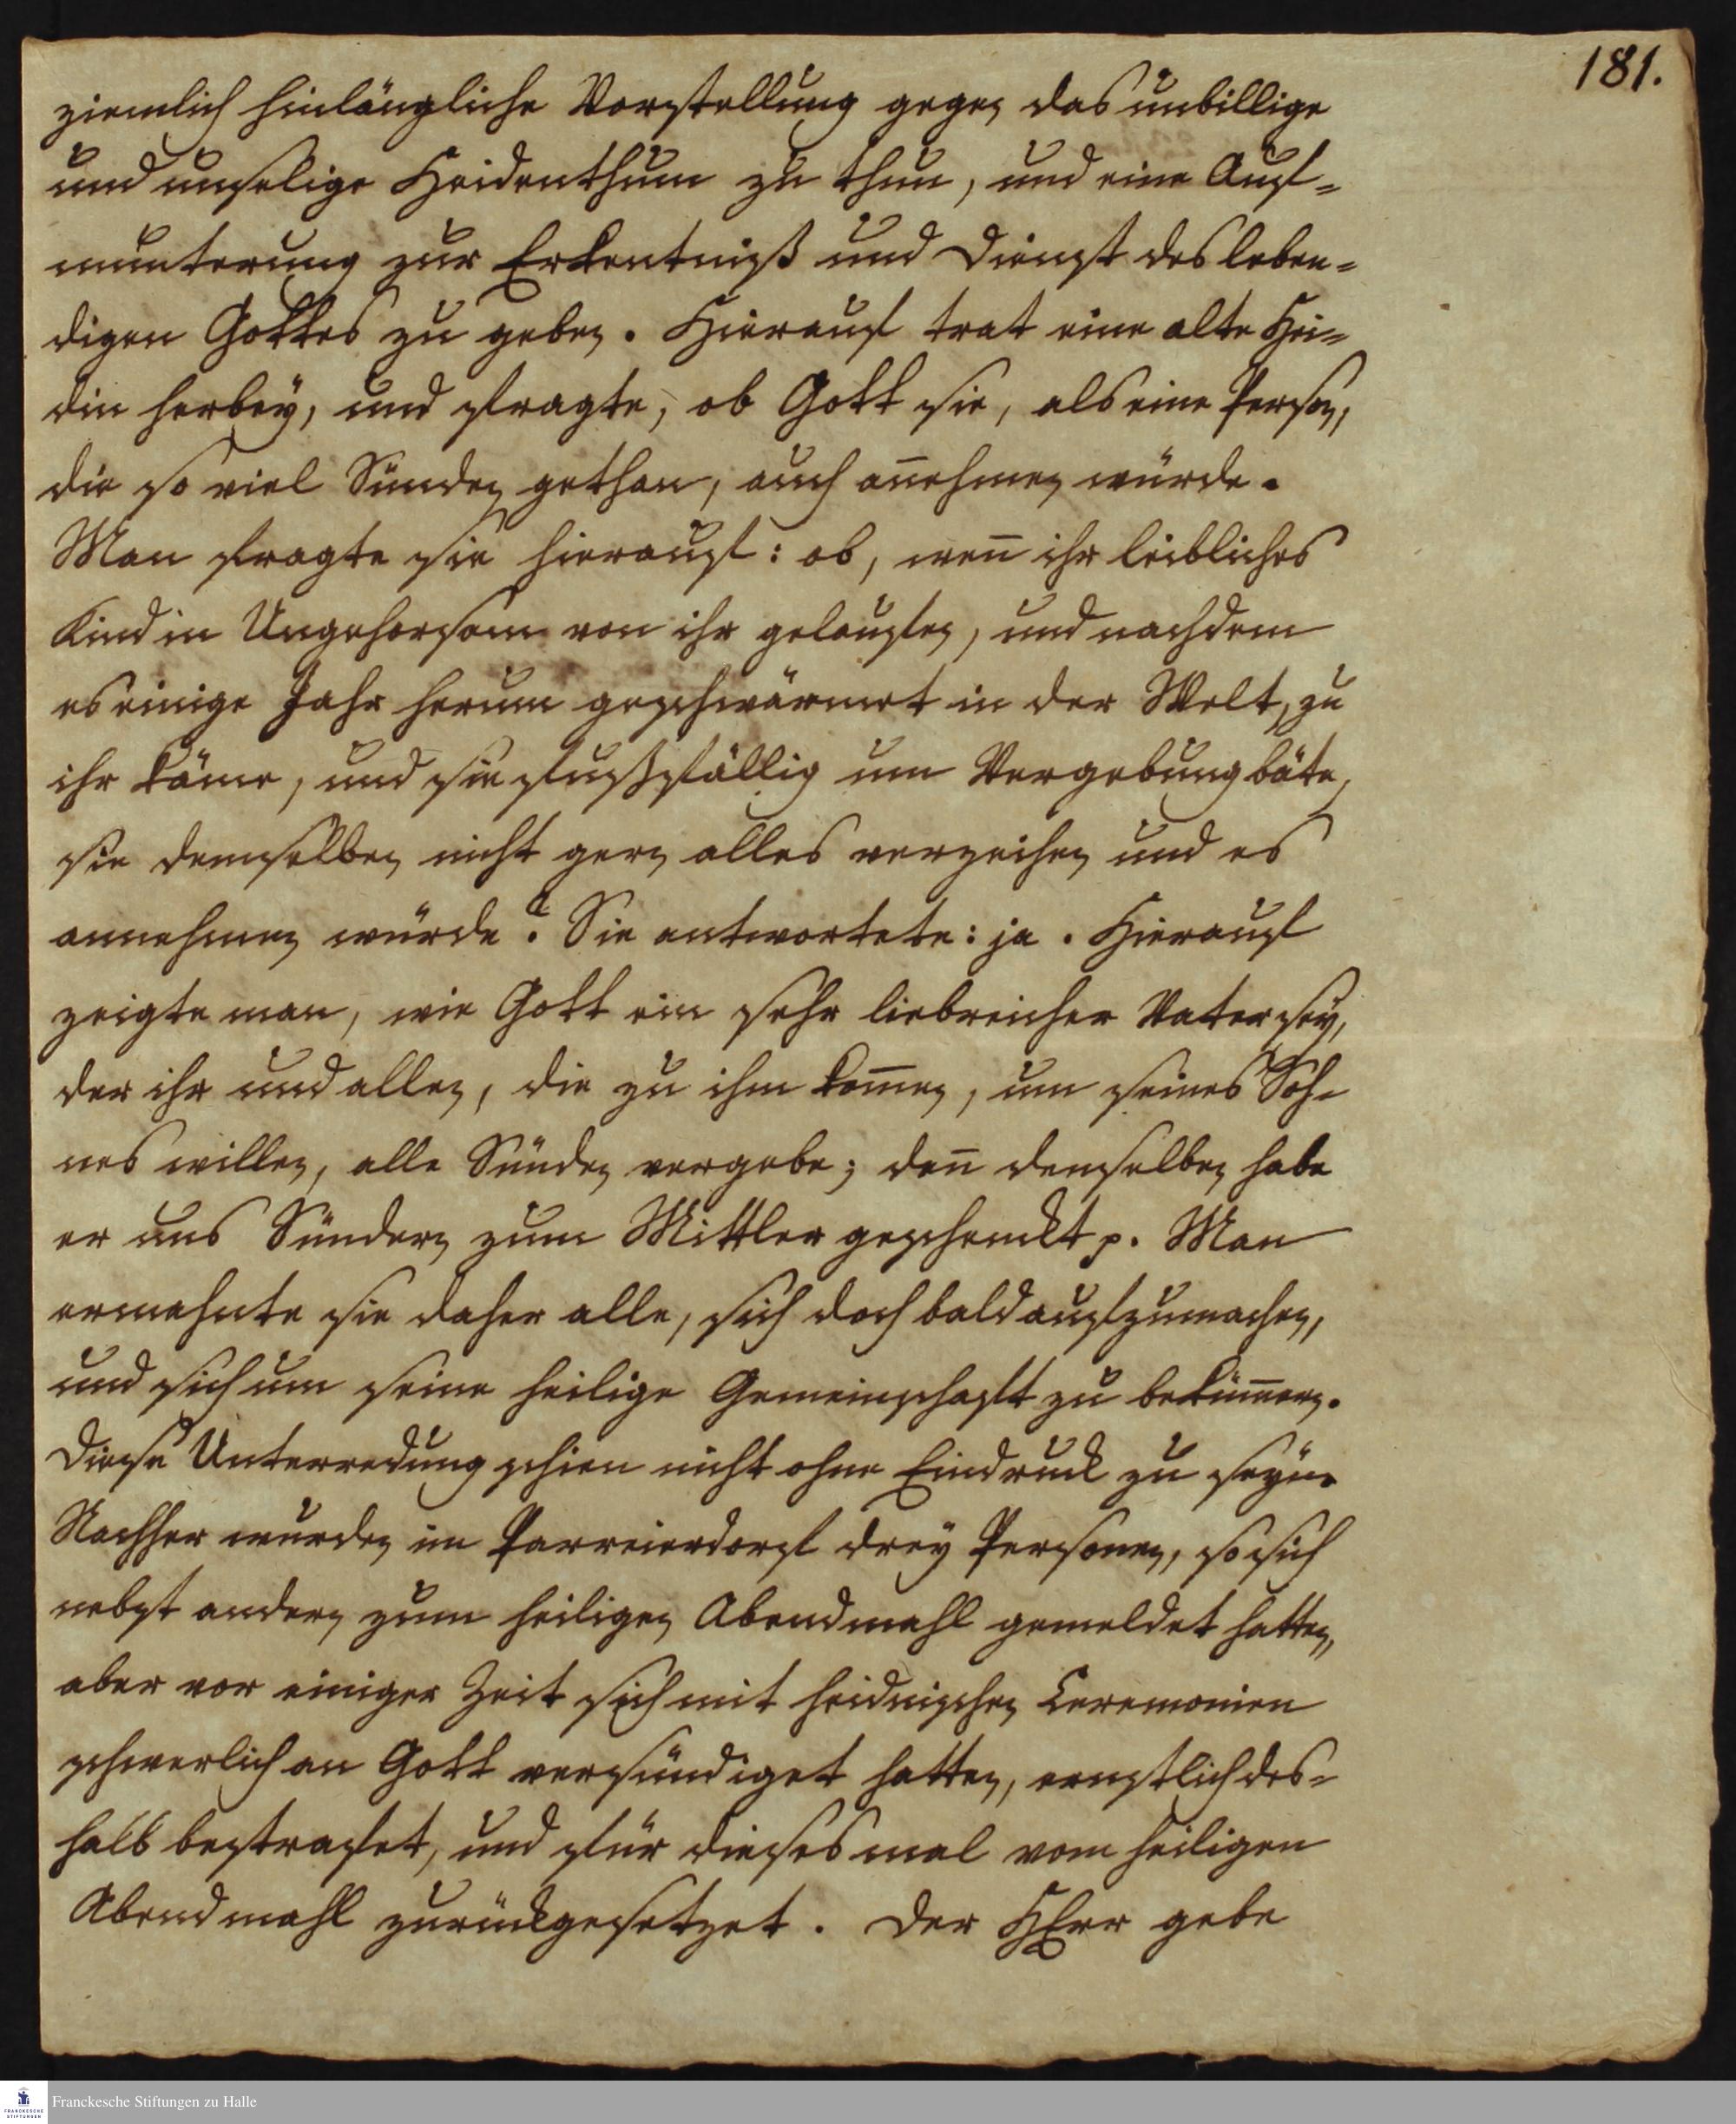 181.
ziemlich hinlängliche Vorstellung gegen das unbillige
und unselige Heidenthum zu thun, und eine Auf-
munterung zur Erkentniß und Dienst des leben-
digen Gottes zu geben. Hierauf trat eine alte Hei-
din herbey, und fragte, ob Gott sie, als eine Person,
die so viel Sünden gethan, auch an̄ehmen würde.
Man fragte sie hierauf: ob, wen̄ ihr leibliches
Kind in Ungehorsam von ihr gelaufen, und nachdem
es einige Jahr herum geschwärmet in der Welt, zu
ihr käme, und sie fußfällig um Vergebung bäte,
sie demselben nicht gern alles verzeihen und es
annehmen würde? Sie antwortete: ja. Hierauf
zeigte man, wie Gott ein sehr liebreicher Vater sey,
der ihr und allen, die zu ihm kom̄en, um seines Soh-
nes willen, alle Sünden vergebe; den̄ denselben habe
er uns Sündern zum Mittler geschenckt p. Man
ermahnte sie daher alle, sich doch bald aufzumachen,
und sich um seine heilige Gemeinschaft zu beküm̄ern.
Diese Unterredung schien nicht ohne Eindruck zu seyn.
Nachher wurden im Parreierdorf drey Personen, so sich
nebst andern zum heiligen Abendmahl gemeldet hatten,
aber vor einiger Zeit sich mit heidnischen Ceremonien
schwerlich an Gott versündiget hatten, ernstlich des-
halb bestrafet, und für dieses mal vom heiligen
Abendmahl zurückgesetzet. Der HErr gebe
Franckesche Stiftungen zu Halle
FRANCKESCHE
STIFTUNGEN